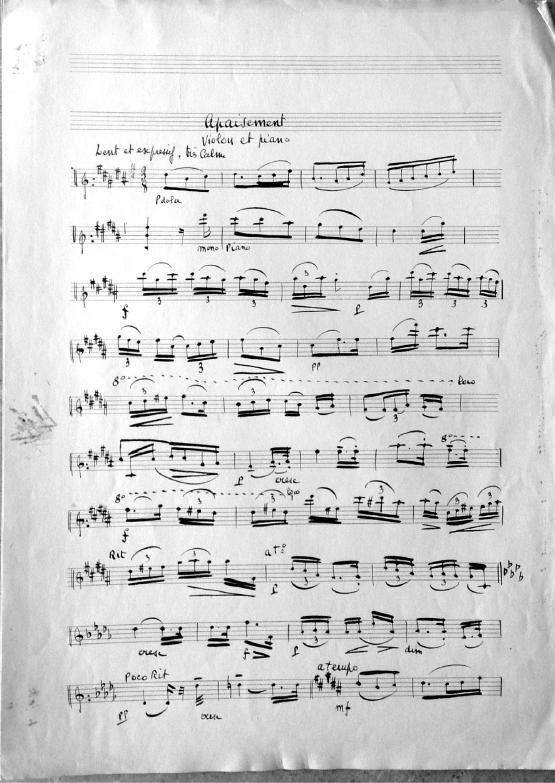 Apaisement
Violon et piano
Lent et expressif, très Calme
P dola
mono Piano
f
3 3 3
3
p
3 3 3
3 3
pp
8º
loco
3 3
3
8º
p cresc
8º
loco
3 3
3 3 3 3
f
Rit
a tº
3 3
3 3 3 3
p
cresc
f p
dim
3
Poco Rit
a tempo
pp
cresc
mf